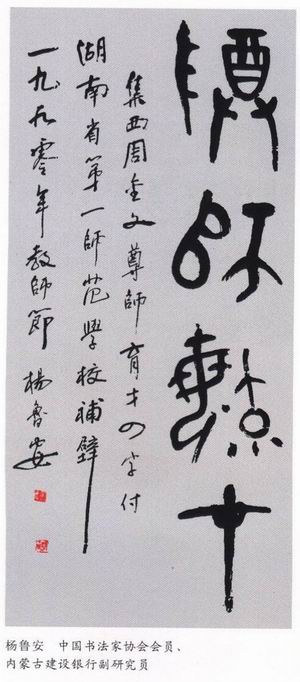 尊師育才
集西周金文尊師育才四字付
湖南省第一師范學校補壁
一九九零年教師節 楊魯安
杨鲁安 中国书法家协会会员、
内蒙古建设银行副研究员